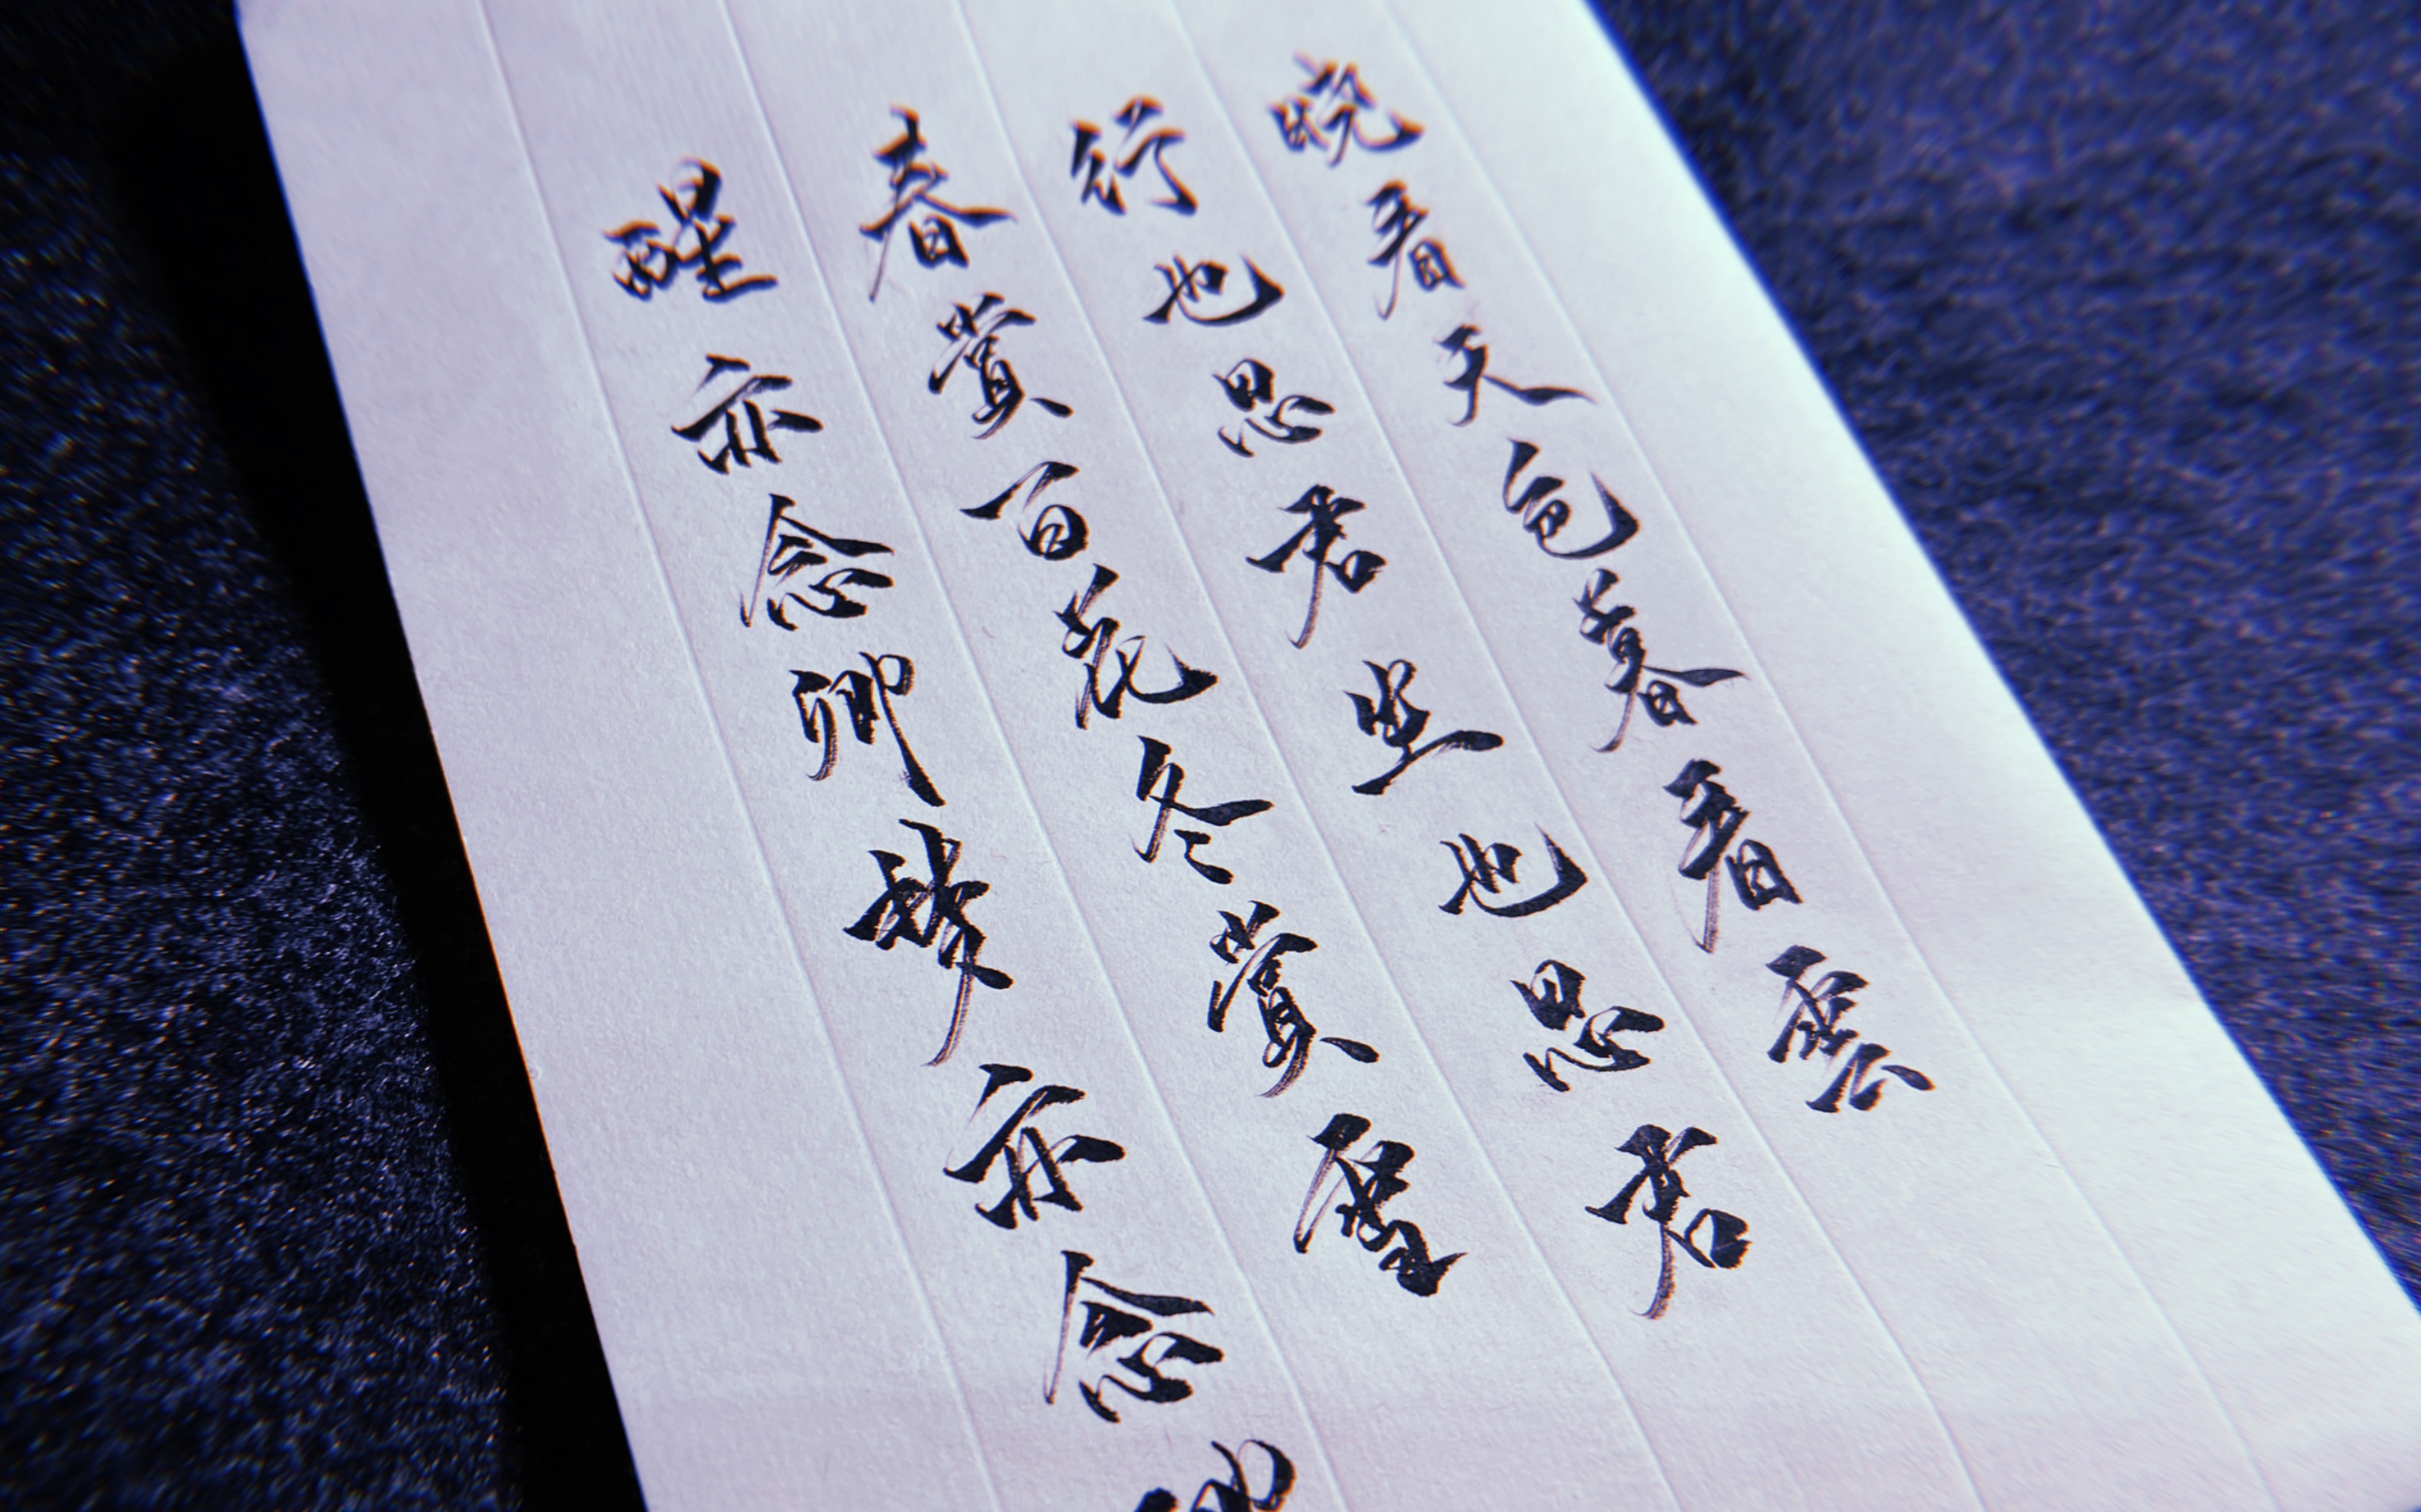 晓看天色暮看雲
行也思君坐也思君
春賞百花冬賞雪
醒亦念卿夢亦念卿